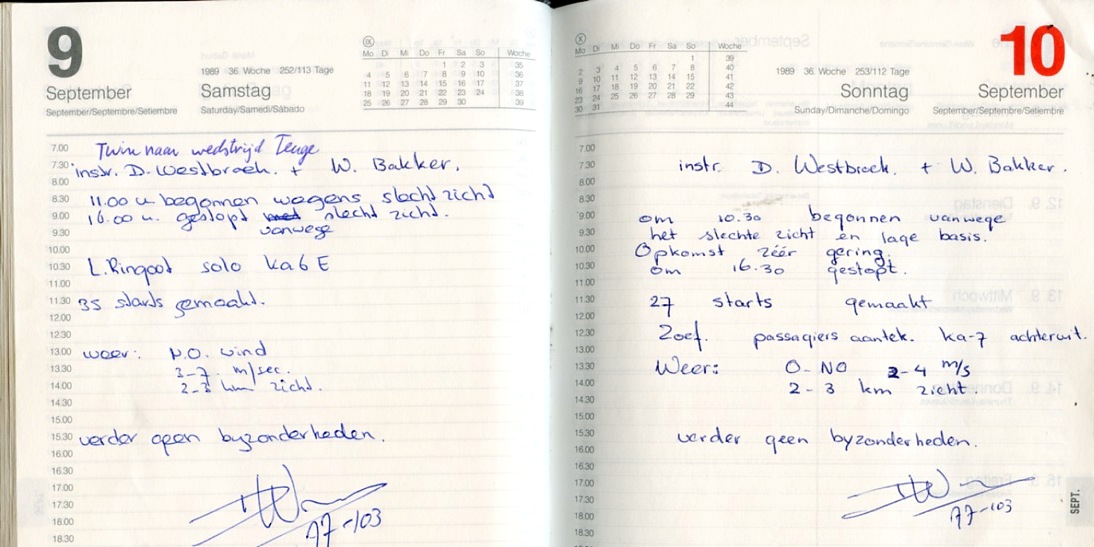 9
September
September/Septembre/Setiembre
1989 36. Woche 252/113 Tage
Samstag
Saturday/Samedi/Sábado
IX
Mo Di Mi Do Fr Sa So Woche
1 2 3 35
4 5 6 7 8 9 10 36
11 12 13 14 15 16 17 37
18 19 20 21 22 23 24 38
25 26 27 28 29 30 39
7.00 Twin naar wedstrijd Teuge
7.30 instr. D. Westbroek. + W. Bakker.
8.00
8.30 11.00 u. begonnen wegens slecht zicht
9.00 16.00 u. gestopt met slecht zicht.
9.30 vanwege
10.00
10.30 L. Ringoot solo Ka6E
11.00
11.30 35 starts gemaakt.
12.00
12.30
13.00 weer: N.O. wind
13.30 3-7 m/sec.
14.00 2-3 km zicht.
14.30
15.00
15.30 verder geen byzonderheden.
16.00
16.30
17.00
17.30
18.00 77-103
18.30
X
Mo Di Mi Do Fr Sa So Woche
1 39
2 3 4 5 6 7 8 40
9 10 11 12 13 14 15 41
16 17 18 19 20 21 22 42
23 24 25 26 27 28 29 43
30 31 44
1989 36. Woche 253/112 Tage
Sonntag
Sunday/Dimanche/Domingo
10
September
September/Septembre/Setiembre
7.00
7.30 instr. D. Westbroek + W. Bakker.
8.00
8.30
9.00 om 10.30 begonnen vanwege
9.30 het slechte zicht en lage basis.
10.00 Opkomst zéér gering.
10.30 om 16.30 gestopt.
11.00
11.30 27 starts gemaakt
12.00
12.30 Zoef. passagiers aantek. Ka-7 achteruit.
13.00
13.30 Weer: O-NO 2-4 m/s
14.00 2-3 km zicht.
14.30
15.00
15.30 verder geen byzonderheden.
16.00
16.30
17.00
17.30
18.00 77-103
18.30
SEPT.